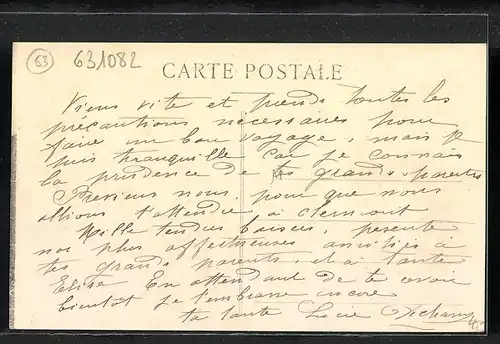 63
631082
CARTE POSTALE
Viens vite et prends toutes les
précautions nécessaires pour
faire un bon voyage, mais je
suis tranquille car je connais
la prudence de tes grands-parents
Préviens nous, pour que nous
allions t'attendre à Clermont
Mille tendres baisers, présente
nos plus affectueuses amitiés à
tes grands parents, et à tante
Elisa En attendant de te revoir
bientôt je t'embrasse encore
ta tante Lucie